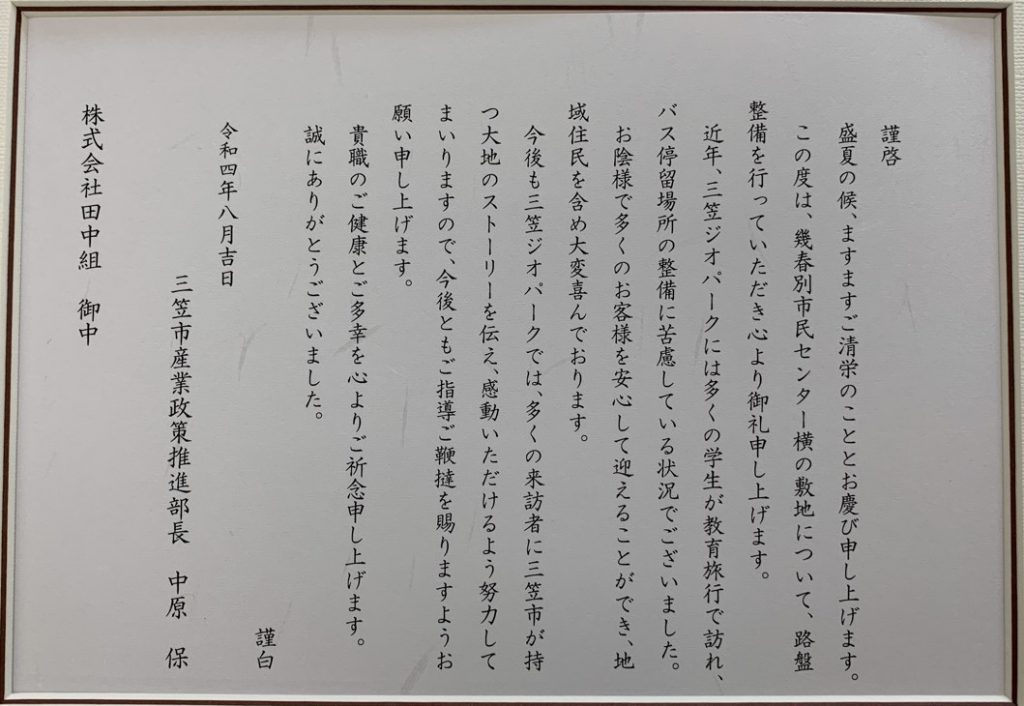 謹啓
盛夏の候、ますますご清栄のこととお慶び申し上げます。
この度は、幾春別市民センター横の敷地について、路盤
整備を行っていただき心より御礼申し上げます。
近年、三笠ジオパークには多くの学生が教育旅行で訪れ、
バス停留場所の整備に苦慮している状況でございました。
お陰様で多くのお客様を安心して迎えることができ、地
域住民を含め大変喜んでおります。
今後も三笠ジオパークでは、多くの来訪者に三笠市が持
つ大地のストーリーを伝え、感動いただけるよう努力して
まいりますので、今後ともご指導ご鞭撻を賜りますようお
願い申し上げます。
貴職のご健康とご多幸を心よりご祈念申し上げます。
誠にありがとうございました。
謹白
令和四年八月吉日
三笠市産業政策推進部長 中原 保
株式会社田中組 御中